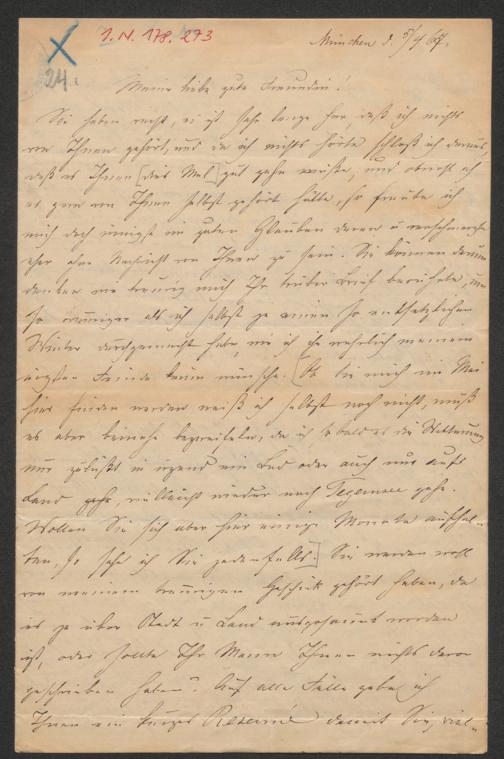 I.N. 178.273
24.
München d. 5/4 67.
Meine liebe gute Freundin!
Sie haben recht, es ist sehr lange her daß ich nichts
von Ihnen gehört, und da ich nichts hörte schloß ich daraus,
daß es Ihnen [das Mal] gut gehn müsse, und obwohl ich
es gern von Ihnen selbst gehört hätte, so freute ich
mich doch innigst im guten Glauben daran u
eher ohne Nachricht von Ihnen zu sein. Sie können daraus
denken wie traurig mich Ihr trüber Brief berührte, um
so inniger als ich selbst ja einen so entsetzlichen
Winter durchgemacht habe, wie ich ihn wahrlich meinem
ärgsten Feinde kaum wünsche. [Ob Sie mich im Mai
hier finden werden weiß ich selbst noch nicht, muß
es aber beinahe bezweifeln, da ich sobald es die Witterung
nur zuläßt in irgend ein Bad oder auch nur aufs
Land gehe, vielleicht wieder nach Tegernsee gehe.
Wollen Sie sich aber hier einige Monate aufhal-
ten, so sehe ich Sie jedenfalls.] Sie werden wohl
von meinem traurigen Geschick gehört haben, da
es ja über Stadt u Land ausposaunt worden
ist, oder sollte Ihr Mann Ihnen nichts davon
geschrieben haben? Auf alle Fälle gebe ich
Ihnen ein kurzes Resumé damit Sie, viel-